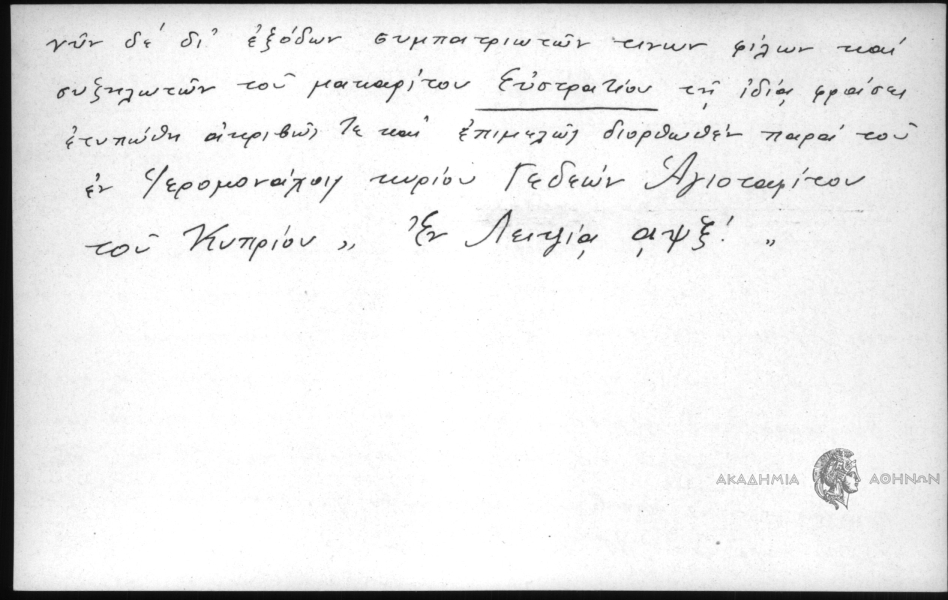 νῦν δέ δι' ἐξόδων συμπατριωτῶν τινων φίλων καί
συζηλωτῶν τοῦ μακαρίτου Εὐστρατίου τῇ ἰδίᾳ φράσει
ἐτυπώθη ἀκριβῶς τε καί ἐπιμελῶς διορθωθέν παρά τοῦ
ἐν Ἱερομονάχοις κυρίου Γεδεών Ἁγιοταφίτου
τοῦ Κυπρίου „ Ἐν Λειψίᾳ ͵αψξʹ. „
ΑΚΑΔΗΜΙΑ ΑΘΗΝΩΝ